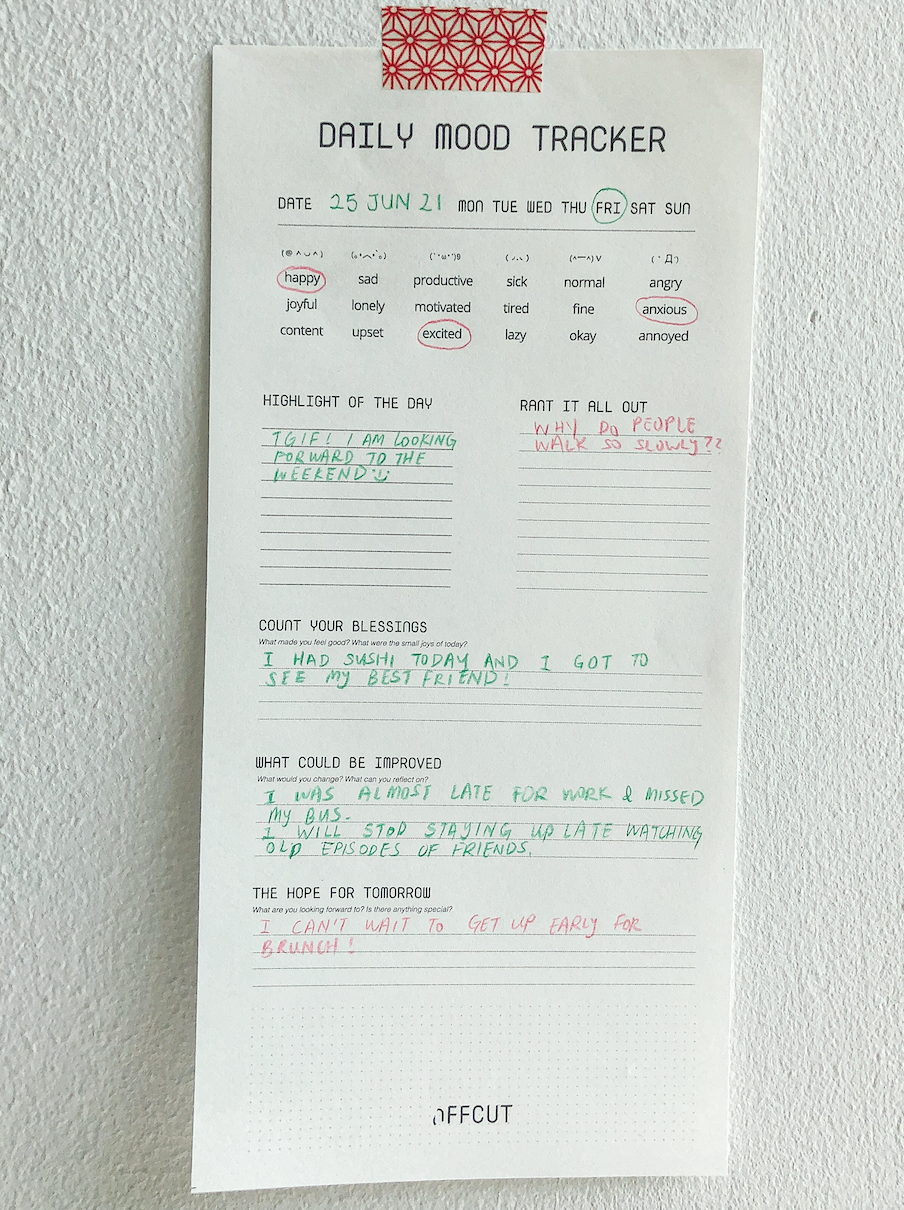 DAILY MOOD TRACKER
DATE 25 JUN 21 MON TUE WED THU FRI SAT SUN
happy sad productive sick normal angry
joyful lonely motivated tired fine anxious
content upset excited lazy okay annoyed
HIGHLIGHT OF THE DAY
TGIF! I AM LOOKING
FORWARD TO THE
WEEKEND
RANT IT ALL OUT
WHY DO PEOPLE
WALK SO SLOWLY??
COUNT YOUR BLESSINGS
What made you feel good? What were the small joys of today?
I HAD SUSHI TODAY AND I GOT TO
SEE MY BEST FRIEND!
WHAT COULD BE IMPROVED
What would you change? What can you reflect on?
I WAS ALMOST LATE FOR WORK & MISSED
MY BUS.
I WILL STOP STAYING UP LATE WATCHING
OLD EPISODES OF FRIENDS.
THE HOPE FOR TOMORROW
What are you looking forward to? Is there anything special?
I CAN'T WAIT TO GET UP EARLY FOR
BRUNCH!
OFFCUT